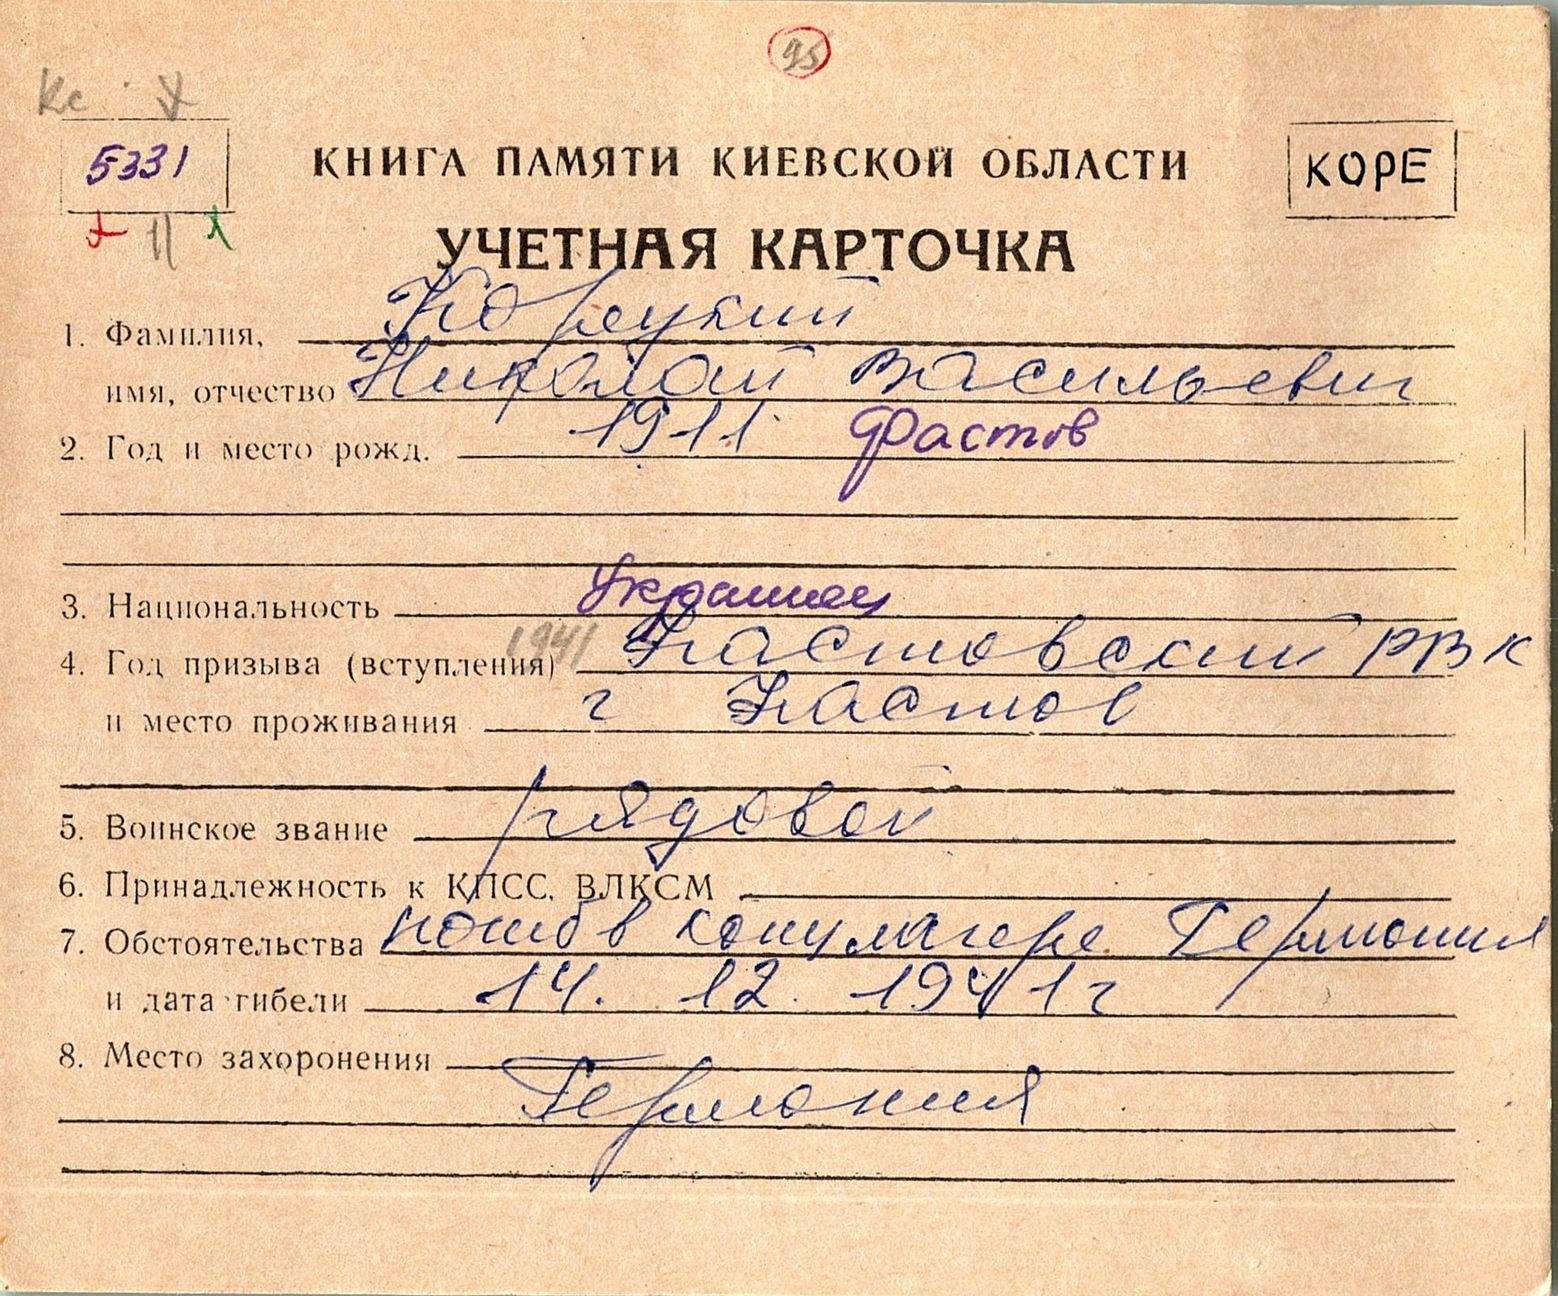 95
Кс
5331
КНИГА ПАМЯТИ КИЕВСКОЙ ОБЛАСТИ
КОРЕ
УЧЕТНАЯ КАРТОЧКА
1. Фамилия, Корецкий
имя, отчество Николай Васильевич
2. Год и место рожд. 1911 Фастов
3. Национальность украинец
4. Год призыва (вступления) 1941 Фастовский РВК
и место проживания г Фастов
5. Воинское звание рядовой
6. Принадлежность к КПСС, ВЛКСМ
7. Обстоятельства погиб в концлагере Германия
и дата гибели 14. 12. 1941 г
8. Место захоронения
Германия